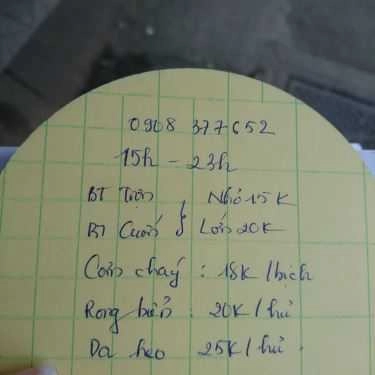 0908 377652
15h - 23h
BT Trộn } Nhỏ 15K
BT Cuốn } Lớn 20K
Cơm cháy : 18K/bịch
Rong biển : 20K/hủ
Da heo 25K/hủ.